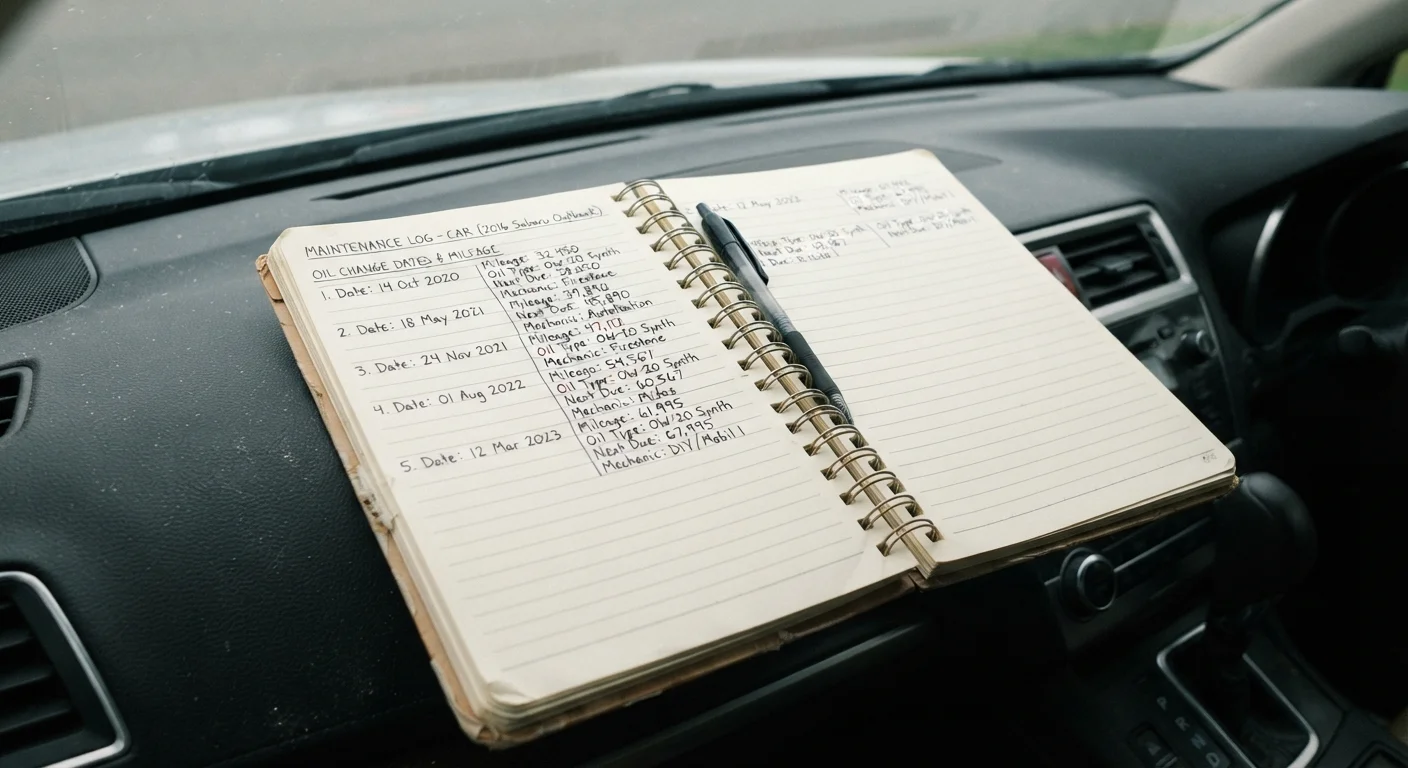 MAINTENANCE LOG - CAR (2016 Subaru Outback)
OIL CHANGE DATES & MILEAGE
1. Date: 14 Oct 2020
Mileage: 32,450
Oil Type: 0w/20 Synth
Next Due:
Mechanic: Firestone
2. Date: 18 May 2021
Mileage: 39,890
Next Due: 45,890
Mechanic:
3. Date: 24 Nov 2021
Mileage:
Oil Type: Synth
Mechanic: Firestone
4. Date: 01 Aug 2022
Mileage: 54,567
Oil Type: 0w 20 Synth
Next Due: 60,567
Mechanic: Midas
5. Date: 12 Mar 2023
Mileage: 61,995
Oil Type: 0w/20 Synth
Next Due: 67,995
Mechanic: DIY/Mobil 1
12 May 2023
Mechanic: DIY/Mobil 1
Oil Type: 0w/20 Synth
Next Due: DIY/Mobil 1
Type: 0w/20 Synth
Next Due:
Due:
P
R
N
D